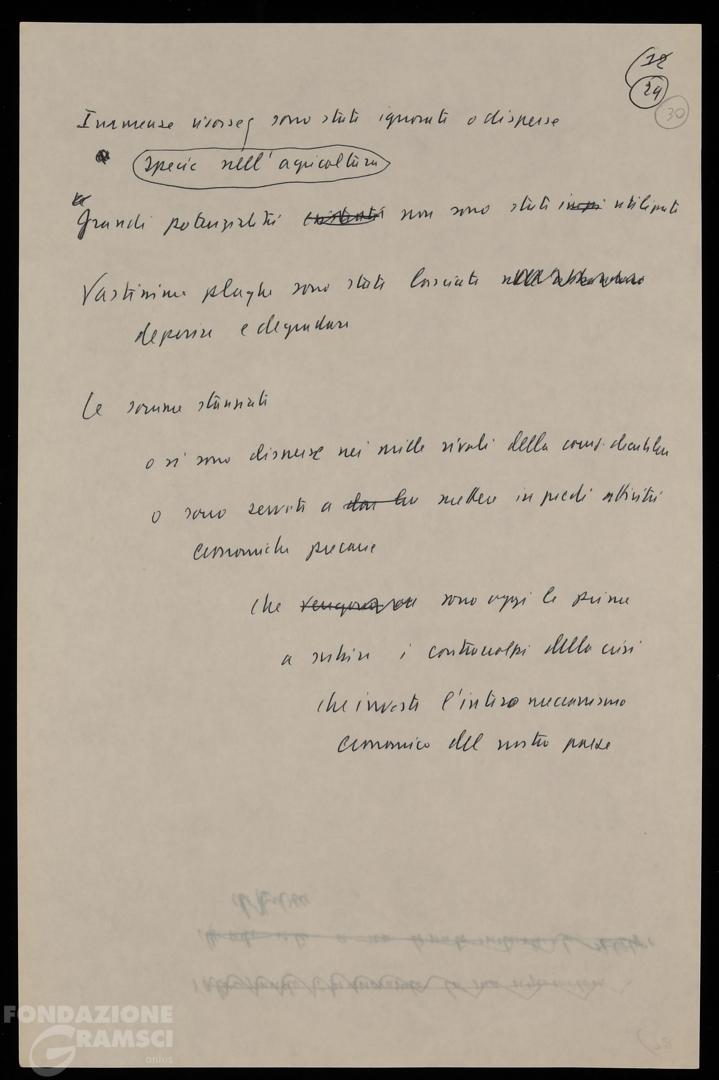 12
29
30
Immense risorse sono state ignorate o disperse
specie nell'agricoltura
Grandi potenzialità non sono state utilizzate
Vastissime plaghe sono state lasciate
deperire e degradare
Le somme stanziate
o si sono disperse nei mille rivoli della
o sono servite a mettere in piedi attività
economiche precarie
che sono oggi le prime
a subire i contraccolpi della crisi
che investe l'intero meccanismo
economico del nostro paese
FONDAZIONE
GRAMSCI
onlus